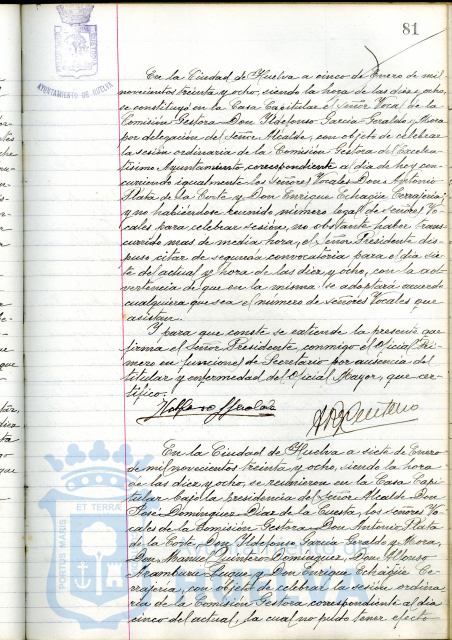 81
AYUNTAMIENTO DE HUELVA
En la Ciudad de Huelva a cinco de Enero de mil
novecientos treinta y ocho, siendo la hora de las diez y ocho,
se constituyó en la Casa Capitular el Señor Vocal de la
Comisión Gestora Don Ildefonso García Geralde y Mora
por delegación del Señor Alcalde, con objeto de celebrar
la sesión ordinaria de la Comisión Gestora del Excelen-
tísimo Ayuntamiento correspondiente al día de hoy con-
curriendo igualmente los Señores Vocales Don Antonio
Plata de la Corte y Don Enrique Echagüe Cerrajería;
y no habiéndose reunido número legal de señores Vo-
cales para celebrar sesión, no obstante haber trans-
currido mas de media hora, el Señor Presidente dis-
puso citar de segunda convocatoria para el día sie-
te del actual y hora de las diez y ocho, con la ad-
vertencia de que en la misma se adoptará acuerdo
cualquiera que sea el número de señores Vocales que
asistan.
Y para que conste se extiende la presente que
firma el Señor Presidente, conmigo el Oficial Pri-
mero en funciones de Secretario por ausencia del
titular y enfermedad del Oficial Mayor, que cer-
tifico.
En la Ciudad de Huelva a siete de Enero
de mil novecientos treinta y ocho, siendo la hora
de las diez y ocho, se reunieron en la Casa Capi-
tular bajo la presidencia del Señor Alcalde Don
José Domínguez Díaz de la Cuesta, los señores Vo-
cales de la Comisión Gestora Don Antonio Plata
de la Corte, Don Ildefonso García Geralde y Mora,
Don Manuel Quintero Domínguez, Don Alfonso
Aramburu Luque y Don Enrique Echagüe Ce-
rrajería, con objeto de celebrar la sesión ordina-
ria de la Comisión Gestora correspondiente al día
cinco del actual, la cual no pudo tener efecto
PORTUS MARIS
ET TERRA
Ayuntamiento de